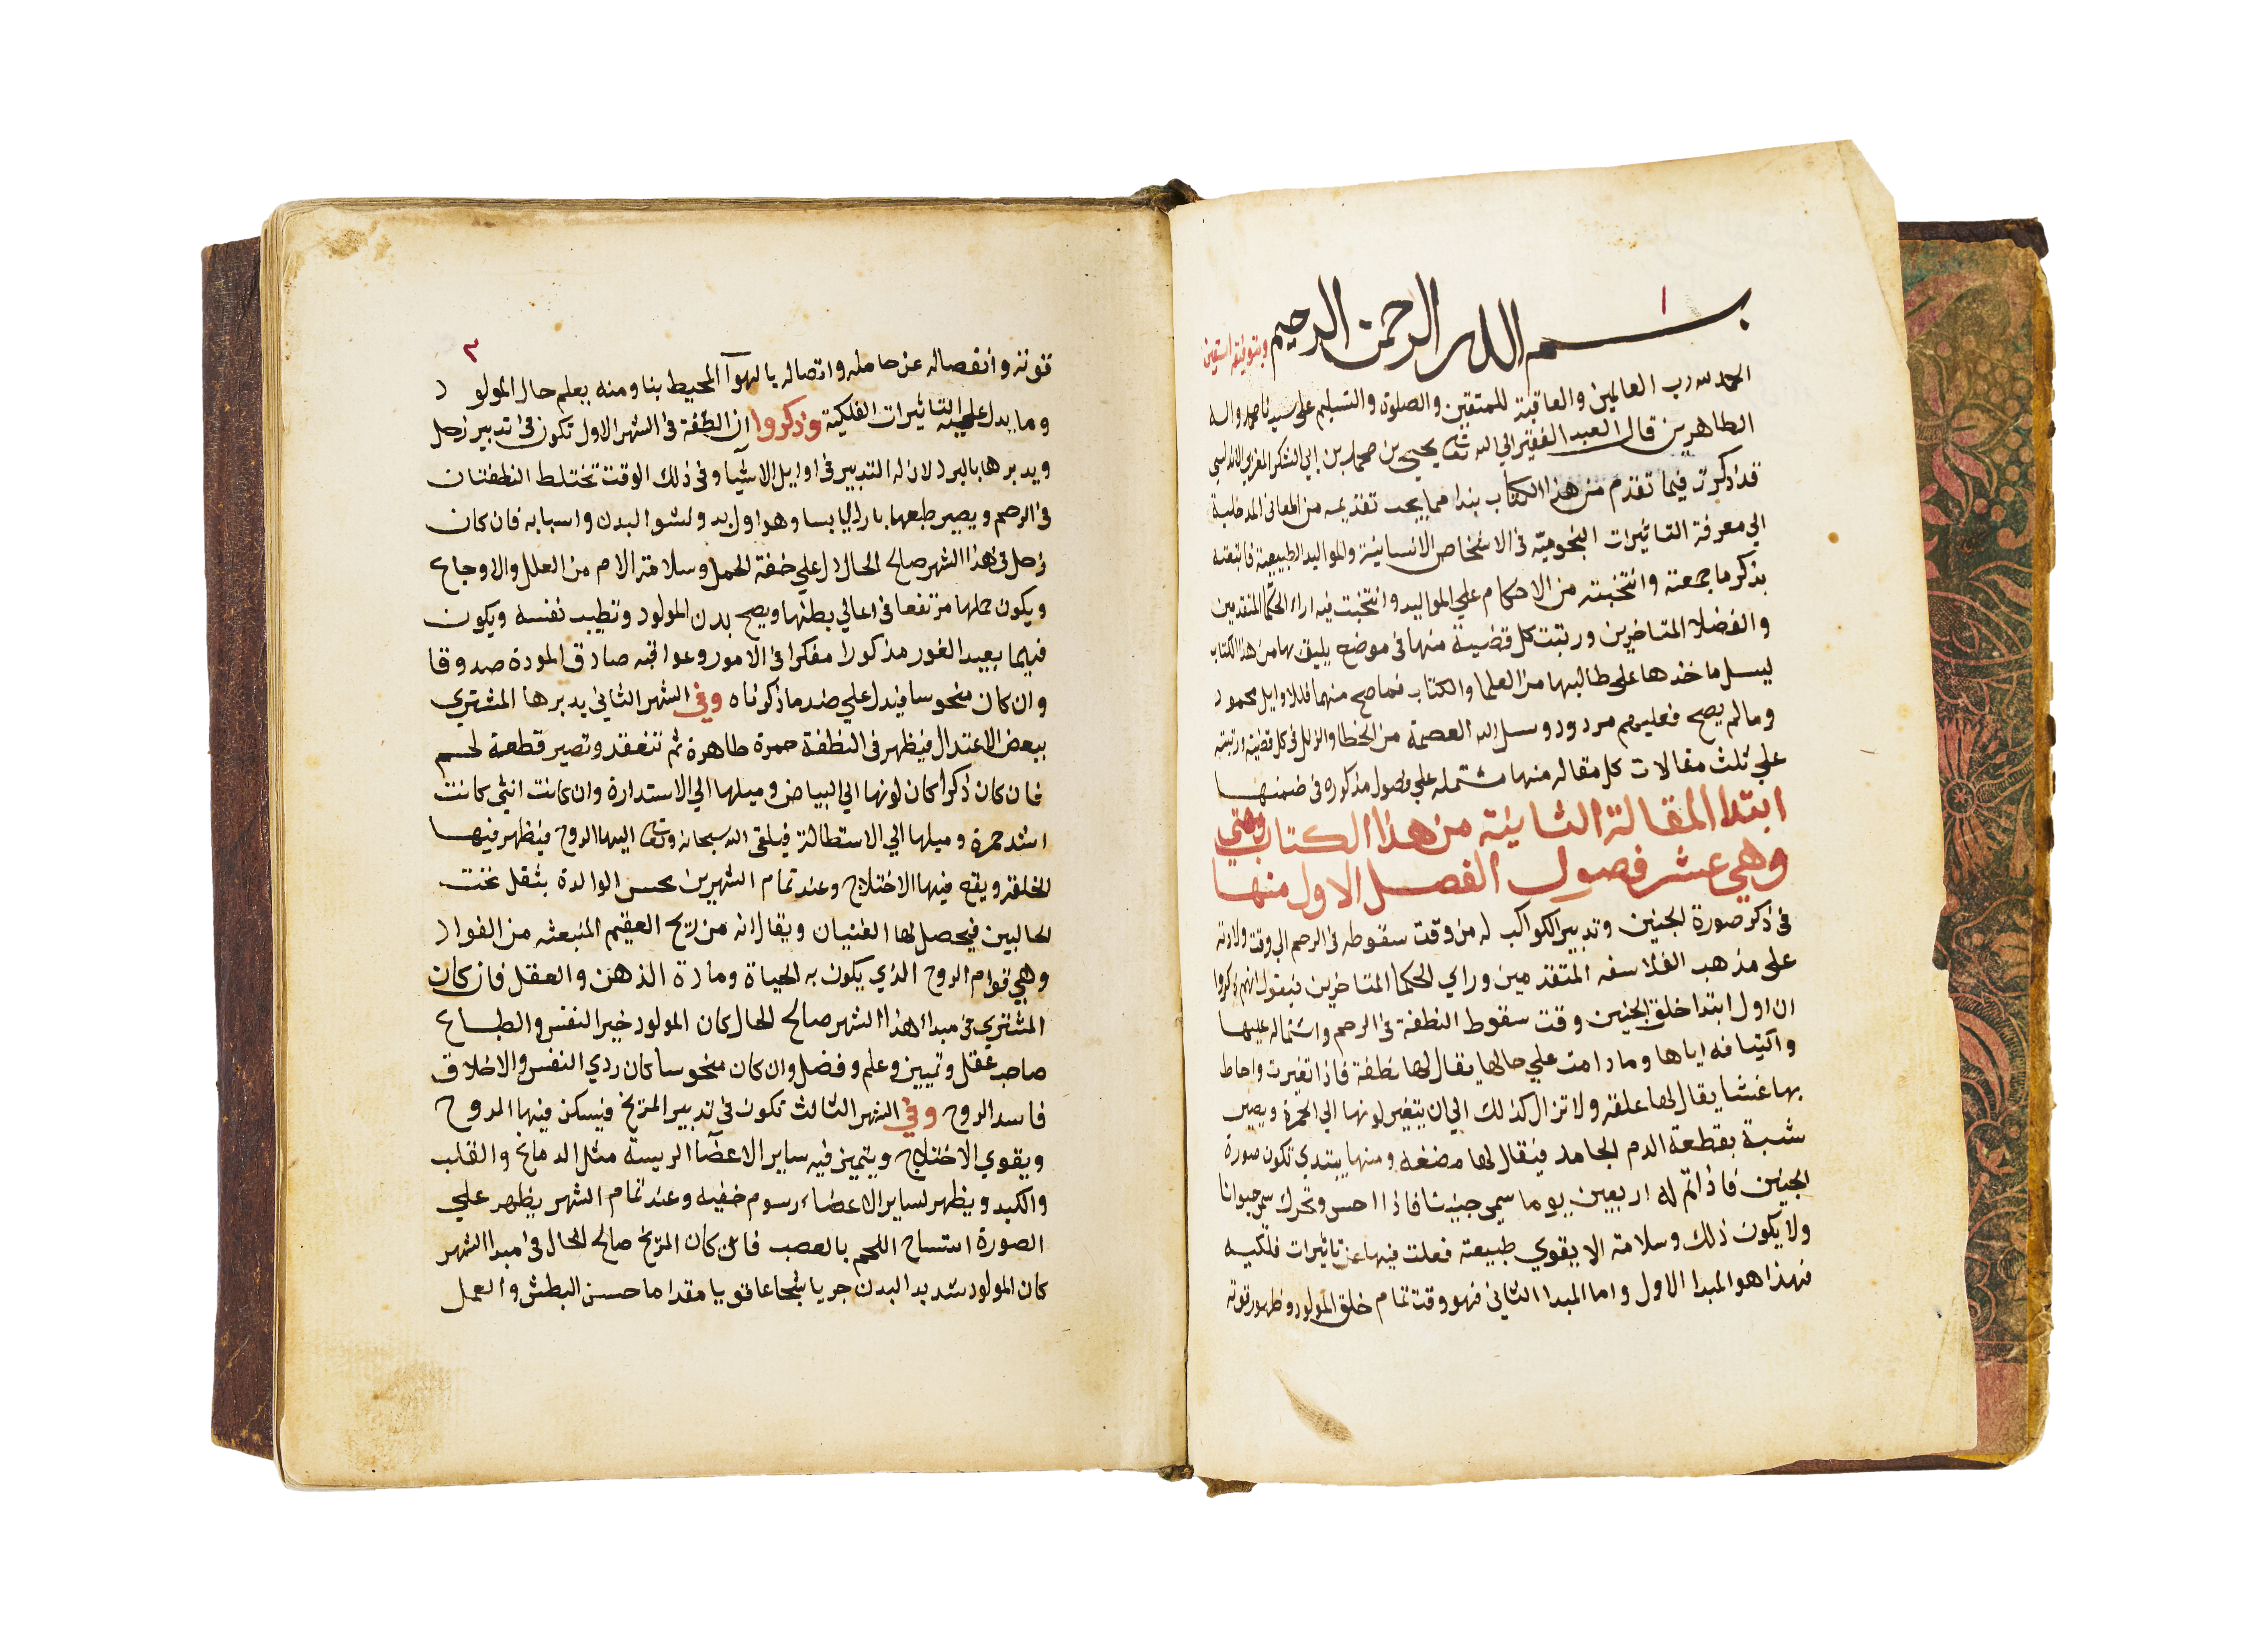 ١
بسم الله الرحمن الرحيم وبتوفيقه استعين
الحمد لله رب العالمين والعاقبة للمتقين والصلوة والتسليم على سيدنا محمد واله
الطاهرين قال العبد الفقير الي الله تعا يحيي بن محمد بن ابي الشكر المغربي الاندلسي
قد ذكرت فيما تقدم من هذا الكتاب بندا مما يجب تقديمه من المعاني المدخلية
الي معرفة التاثيرات النجومية في الاشخاص الانسانية والمواليد الطبيعية فاتبعته
بذكر ما جمعته وانتخبته من الاحكام علي المواليد وانتخبت فيه اراء الحكما المتقدمين
والفضلا المتاخرين ورتبت كل قضية منها في موضع يليق بها من هذا الكتاب
ليسهل ماخذها على طالبها من العلما والكتاب فما صح منها فللاوايل محمود
وما لم يصح فعليهم مردود وسل الله العصمة من الخطا والزلل في كل قضية ورتبته
علي ثلث مقالات كل مقاله منها مشتمله علي فصول مذكوره في ضمنها
ابتدا المقالة الثانية من هذا الكتاب
وهي عشر فصول الفصل الاول منها
في ذكر صورة الجنين وتدبير الكواكب له من وقت سقوطه في الرحم الي وقت ولادته
على مذهب الفلاسفه المتقدمين وراي الحكما المتاخرين فنقول انهم ذكروا
ان اول ابتدا خلق الجنين وقت سقوط النطفة في الرحم واشتماله عليها
واكتنافه اياها وما دامت علي حالها يقال لها نطفة فاذا تغيرت واحاط
بها غشا يقال لها علقه ولا تزال كذلك الي ان يتغير لونها الي الحمرة ويصير
شبة بقطعة الدم الجامد فيقال لها مضغه ومنها يبتدي تكون صورة
الجنين فاذا تم له اربعين يوما سمي جنينا فاذا احس وتحرك سمي حيوانا
ولا يكون ذلك وسلامة الا بقوي طبيعته فعلت فيها عن تاثيرات فلكيه
فهذا هو المبدا الاول واما المبدا الثاني فهو وقت تمام خلق المولود وظهور قوته
٢
قوته وانفصاله عن حامله واتصاله بالهوآ المحيط بنا ومنه يعلم حال المولود
وما يدل عليه التاثيرات الفلكية وذكروا ان النطفة في الشهر الاول تكون في تدبير زحل
ويدبرها بالبرد لان له التدبير في اوايل الاشيآ وفي ذلك الوقت تختلط النطفتان
في الرحم ويصير طبعها باردا يابسا وهو اول بدو نشو البدن واسبابه فان كان
زحل في هذا الشهر صالح الحال دل علي خفة الحمل وسلامة الام من العلل والاوجاع
ويكون حملها مرتفعا في اعالي بطنها ويصح بدن المولود وتطيب نفسه ويكون
فهيما بعيد الغور مذكورا مفكرا في الامور وعواقبه صادق المودة صدوقا
وان كان منحوسا فيدل علي ضد ما ذكرناه وفي الشهر الثاني يدبرها المشتري
ببعض الاعتدال فيظهر في النطفة حمرة طاهرة ثم تنعقد وتصير قطعة لحم
فان كان ذكرا كان لونها الي البياض وميلها الي الاستدارة وان كانت انثي كانت
اشد حمرة وميلها الي الاستطالة فيلقي الله سبحانه وتعا اليها الروح فيظهر فيها
الخلقة ويقع فيها الاختلاج وعند تمام الشهرين يحس الوالدة بثقل تحت
الحالبين فيحصل لها الغنيان ويقال انه من ريح العقيم المنبعثه من الفواد
وهي قوام الروح الذي يكون به الحياة ومادة الذهن والعقل فان كان
المشتري في مبدا هذا الشهر صالح الحال كان المولود خير النفس والطباع
صاحب عقل وتمييز وعلم وفضل وان كان منحوسا كان ردي النفس والاخلاق
فاسد الروح وفي الشهر الثالث تكون في تدبير المريخ فيسكن فيها الروح
ويقوي الاختلاج ويتميز فيه ساير الاعضآ الريسة مثل الدماغ والقلب
والكبد ويظهر لساير الاعضاء رسوم خفيه وعند تمام الشهر يظهر علي
الصورة انتساج اللحم بالعصب فان كان المريخ صالح الحال في مبدا الشهر
كان المولود شديد البدن جريا شجاعا قويا مقداما حسن البطش والعمل